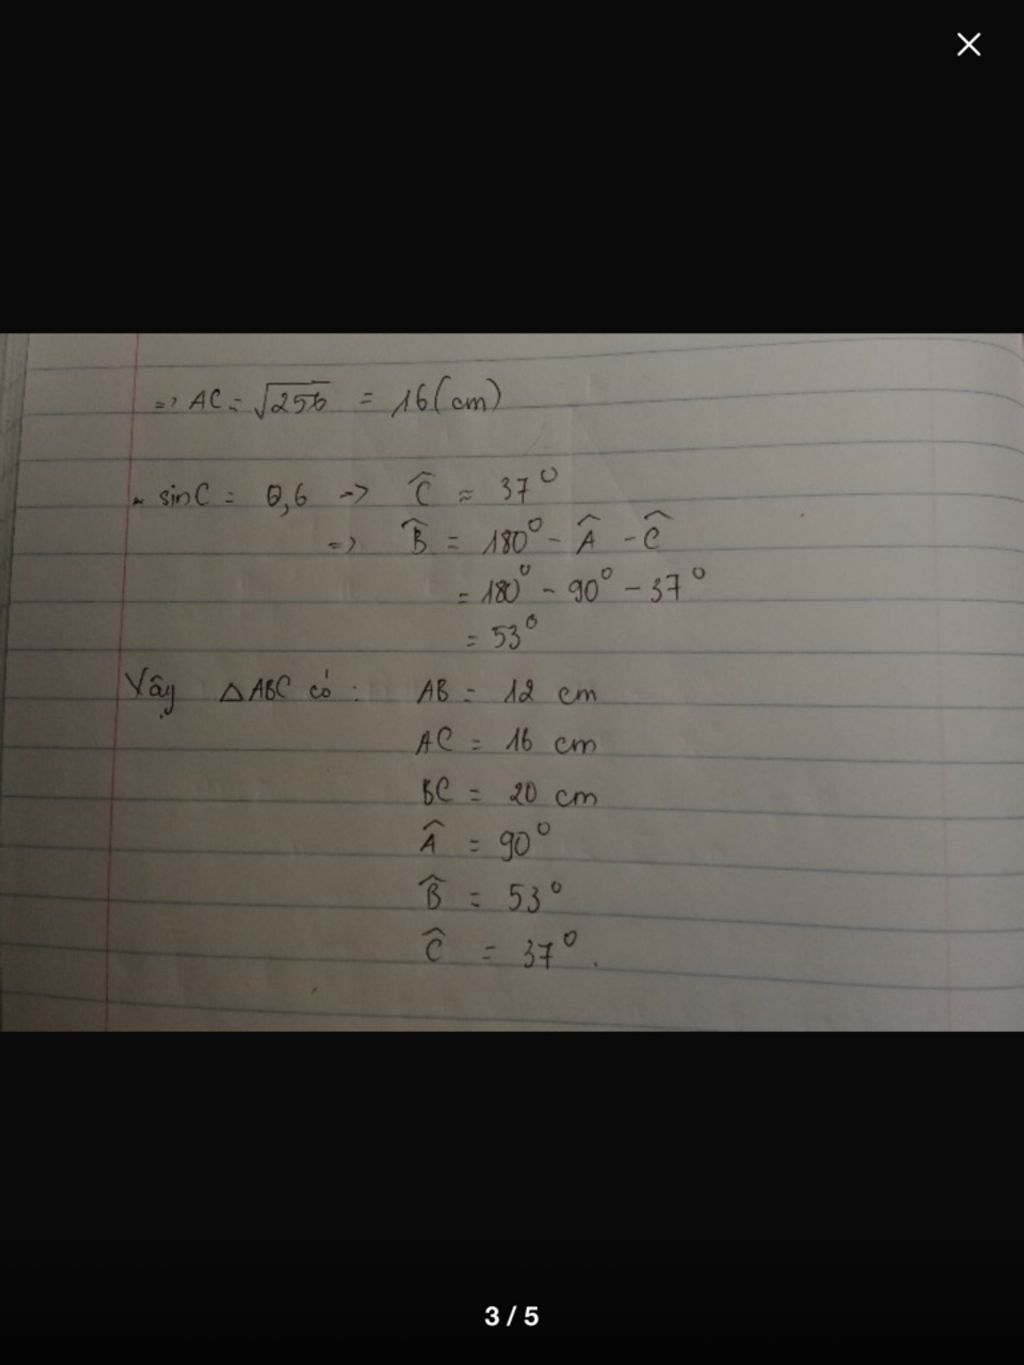 => AC = √256 = 16 (cm)
- sinC = 0,6 => Ĉ ≈ 37°
=> B̂ = 180° - Â - Ĉ
= 180° - 90° - 37°
= 53°
Vậy △ABC có: AB = 12 cm
AC = 16 cm
BC = 20 cm
Â = 90°
B̂ = 53°
Ĉ = 37°.
3 / 5